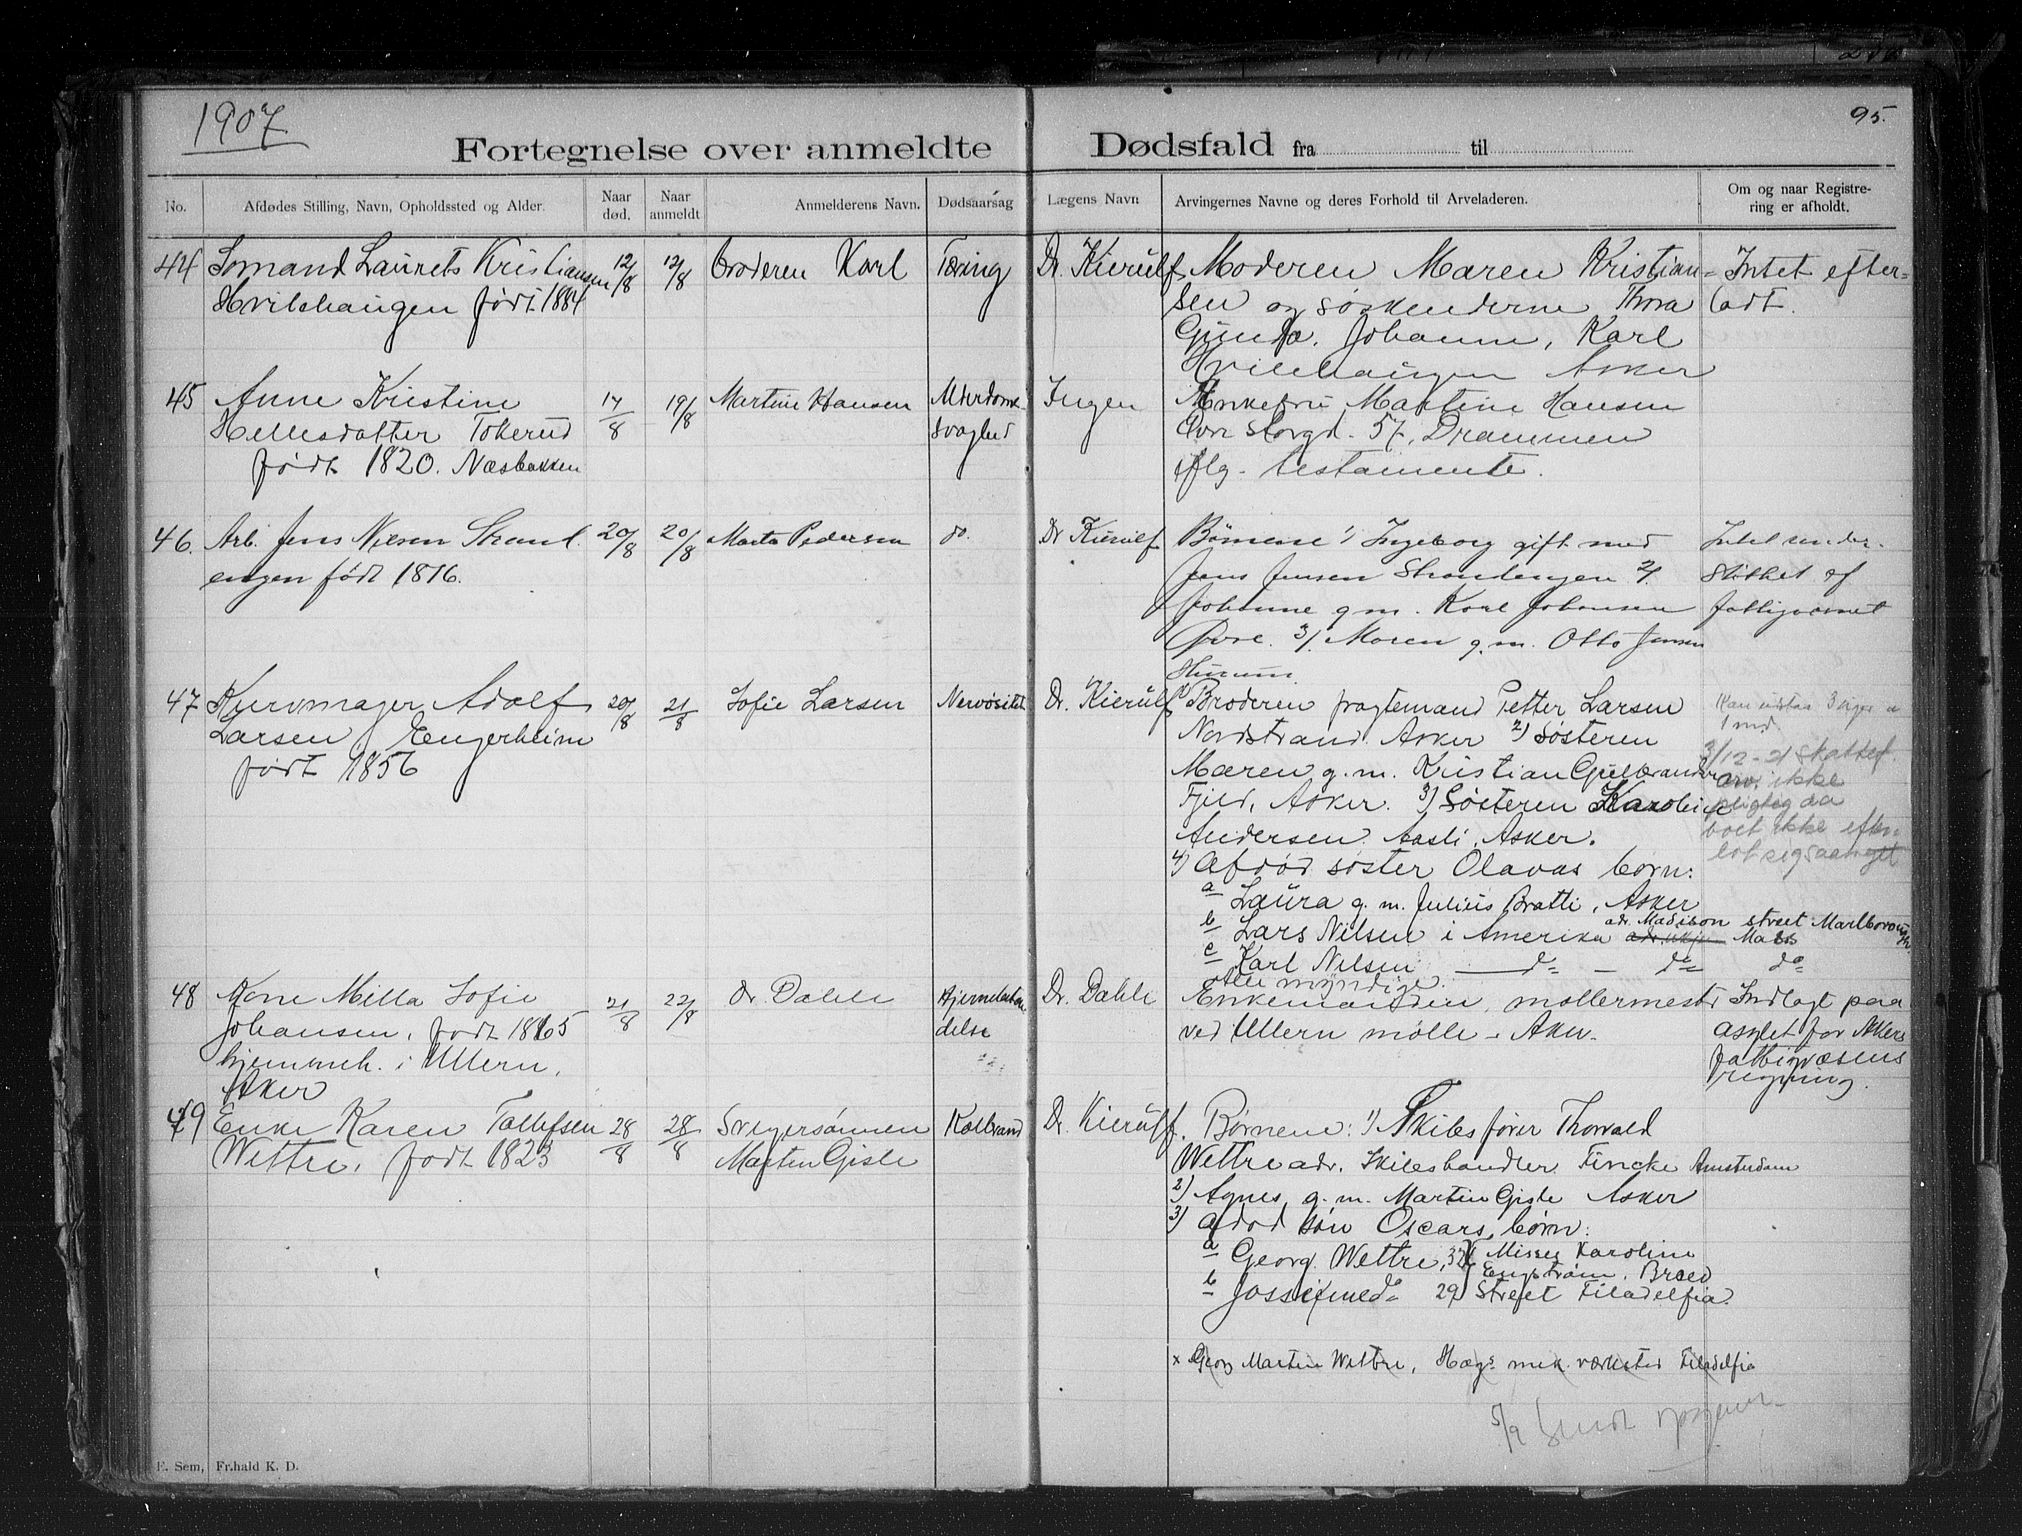 1907
95.
Fortegnelse over anmeldte Dødsfald fra til
No.
Afdødes Stilling, Navn, Opholdssted og Alder.
Naar død.
Naar anmeldt
Anmelderens Navn.
Dødsaarsag
Lægens Navn
Arvingernes Navne og deres Forhold til Arveladeren.
Om og naar Registre-
ring er afholdt.
44 Sømand Laurets Kristiansen 12/8 12/8 broderen Karl Tæring Dr. Kierulf Moderen Maren Kristian= Intet efter=
Hvilehaugen født 1884 sen og søskenderne Thora ladt.
Gunda, Johanne, Karl
Hvilehaugen Asker
45 Anne Kristine 17/8 19/8 Martine Hansen Alderdoms- Ingen Enkefru Martine Hansen
Hellesdatter Tokerud svaghed Øvre Storgd. 57, Drammen
født 1820. Næsbakken iflg. testamente.
46. Arb. Jens Nilsen Strand- 20/8 20/8 Marta Pedersen do. Dr Kierulf Børnene 1/ Ingeborg gift med Intet under-
engen født 1816. Jens Jensen Strandengen 2/ støttet af
Johanne g.m. Karl Johansen fattigvæsnet
Øvre. 3/. Maren g.m. Otto Jensen
Hurum.
47 Adolf 20/8 21/8 Sofie Larsen Nervøsitet Dr. Kierulf 1) Broderen fragtemand Petter Larsen Kan udstaa 3 uger a
Larsen, Engerheim Nordstrand Asker 2) søsteren 1 md.
født 1856 Maren g.m. Kristian Gulbrandsen 3/12-21 Skattef.
Fjeld, Asker. 3) Søsteren Karoline arv. ikke
Andersen Aasli, Asker. pligtig da
4) Afdød søster Olavas børn: boet ikke efter-
a Laura g.m. Julius Bratli, Asker
b Lars Nilsen i Amerika adr. Madison street Marlborough Mass
c Karl Nilsen do do do
Alle myndige.
48 Kone Milla Sofie 21/8 22/8 Dr. Dahle Dr. Dahle Enkemanden, møllermester Indlagt paa
Johansen, født 1865 delse ved Ullern mølle - Aker. asylet for Akers
hjemmeh. i Ullern, fattigvæsens
Aker regning.
49 Enke Karen Tollefsen 28/8 28/8 Svigersønnen Koldbrand Dr. Kierulf. Børnene: 1) Skibsfører Thorvald
Wettre, født 1823 Martin Gisle Wettre adr. Skibshandler Fincke Amsterdam
2) Agnes g.m. Martin Gisle Asker
3) Afdød søn Oscars børn:
a Georg Wettre, 32 Misses Karoline
Engstrøm, Broed
b do 29 Street Filadelfia.
x Georg Martin Wettre, mek. værksted Filadelfia
5/9 Sendt
E. Sem, Fr.hald K. D.